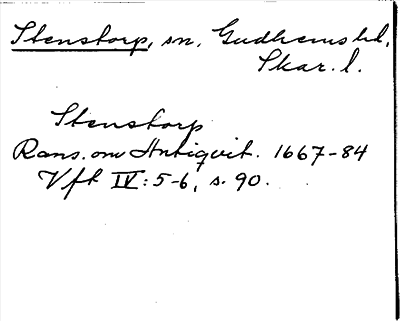 Stenstorp, sn, Gudhems hd,
Skar. l.
Stenstorp
Rans. om Antiquit. 1667-84
Vft IV: 5-6, s. 90.